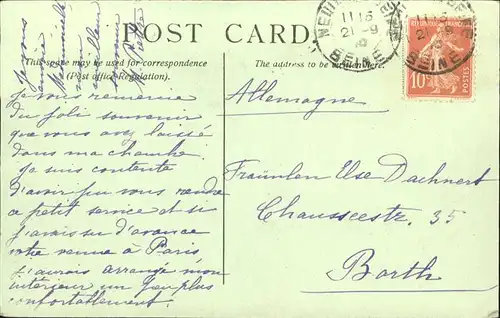 POST CARD
This space may be used for correspondence
(Post office Regulation).
The address to be written here.
11 15
21-9
SEINE
REPUBLIQUE FRANÇAISE
10c
POSTES
Allemagne
Fräulein Else Dachnert
Chausseestr. 35
Barth
Je vous remercie
du joli souvenir
que vous avez laissé
dans ma chambre.
Je suis contente
d'avoir pu vous rendre
ce petit service et si
j'avais su d'avance
votre venue à Paris
j'aurais arrangé mon
intérieur un peu plus
confortablement.
Je vous